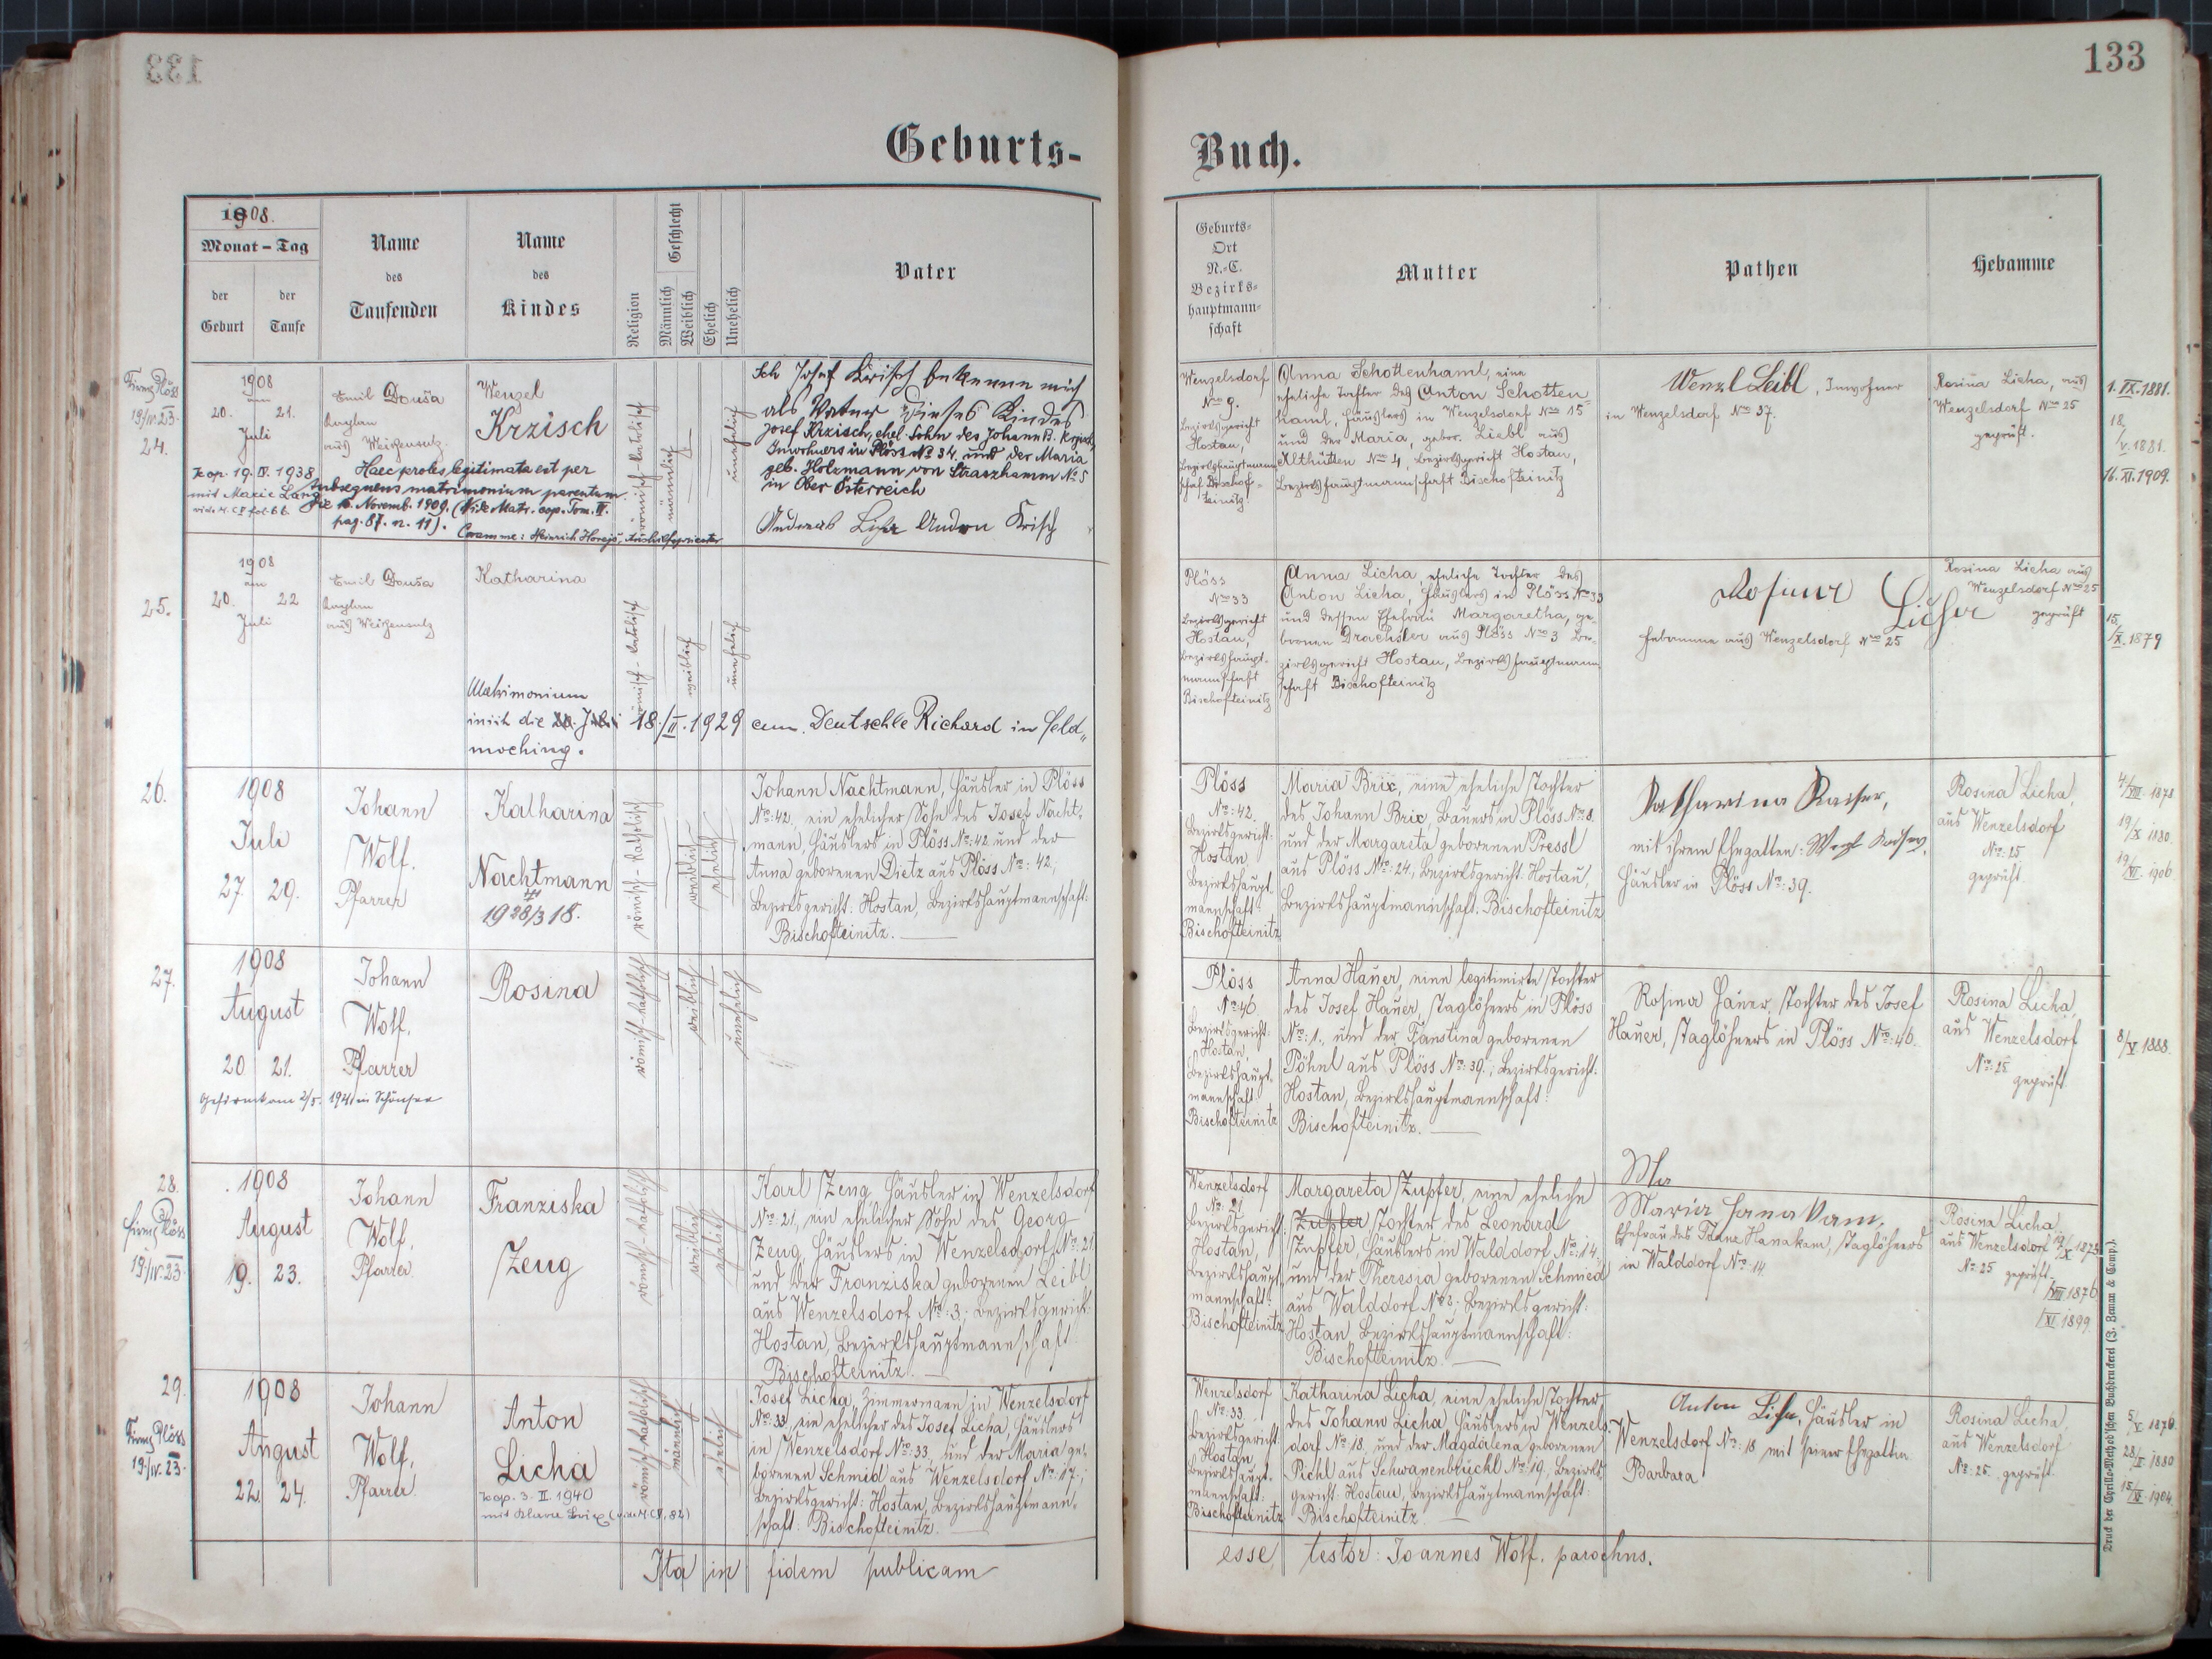 133
Geburts-
1908.
Monat - Tag
der Geburt
der Taufe
Name des Taufenden
Name des Kindes
Religion
Geschlecht
Männlich
Weiblich
Ehelich
Unehelich
Vater
24.
1908
am
20. 21.
Juli
Emil Douša
Kaplan
aus Weißensulz
Wenzel
Krzisch
römisch-katolisch
männlich
unehelich
Ich Josef Krisch bekenne mich
als Vater dieses Kindes
Josef Krzisch, ehel. Sohn des Johann B. Krzisch,
Inwohners in Plöss No 34 und der Maria
geb. Holzmann von Straszhamm No 5
in Ober Österreich
Andreas Licha Andon Krisch
kop. 19. IV. 1938
mit Marie Lang
Haec proles legitimata est per
subsequens matrimonium parentum
die 16. Novemb. 1909. (Vide Matr. cop. Tom. II.
pag. 87. n. 11).
Coram me: Heinrich Horejs, Aushilfspriester
25.
1908
am
20. 22
Juli
Emil Douša
Kaplan
aus Weißensulz
Katharina
römisch-katolisch
weiblich
unehelich
Matrimonium
iniit die 18./II. 1929 cum Deutschle Richard in Feld„
moching.
26.
1908
Juli
27. 29.
Johann
Wolf.
Pfarrer
Katharina
Nachtmann
1928/3 18.
römisch-katholisch
weiblich
ehelich
Johann Nachtmann, Häusler in Plöss
No: 42., ein ehelicher Sohn des Josef Nacht-
mann, Häuslers in Plöss No: 42. und der
Anna geborenen Dietz aus Plöss No: 42,
Bezirksgericht: Hostau, Bezirkshauptmannschaft:
Bischofteinitz.
27.
1908
August
20 21.
Johann
Wolf.
Pfarrer
Rosina
römisch-katholisch
weiblich
unehelich
Gefirmt am 2/5. 1921 in Schönsee
28.
Firmg Plöss
19/IV. 23
1908
August
19. 23.
Johann
Wolf.
Pfarrer
Franziska
Zeug
römisch-katholisch
weiblich
ehelich
Karl Zeug Häusler in Wenzelsdorf
No: 21, ein ehelicher Sohn des Georg
Zeug, Häuslers in Wenzelsdorf No: 21
und der Franziska geborenen Leibl
aus Wenzelsdorf No: 3; Bezirksgericht:
Hostau, Bezirkshauptmannschaft:
Bischofteinitz.
29.
Firmg Plöss
19./IV. 23
1908
August
22. 24.
Johann
Wolf.
Pfarrer
Anton
Licha
kop. 3. II. 1940
römisch-katholisch
männlich
ehelich
Josef Licha, Zimmermann in Wenzelsdorf
No: 33, ein ehelicher des Josef Licha, Häuslers
in Wenzelsdorf No: 33, und der Maria ge-
borenen Schmid aus Wenzelsdorf No: 17;
Bezirksgericht: Hostau, Bezirkshauptmann-
schaft: Bischofteinitz.
Ita in fidem publicam
133
Buch.
Geburts-
Ort
N.-C.
Bezirks-
hauptmann-
schaft
Mutter
Pathen
Hebamme
Wenzelsdorf
No 9.
Bezirksgericht
Hostau,
Bezirkshauptmann
schaft Bischof-
teinitz.
Anna Schottenhaml, eine
eheliche Tochter des Anton Schotten-
haml, Häuslers in Wenzelsdorf No 15
und der Maria, gebor. Liebl aus
Althütten No 4, Bezirksgericht Hostau,
Bezirkshauptmannschaft Bischofteinitz
Wenzl Leibl, Inwohner
in Wenzelsdorf No 37.
Rosina Licha, aus
Wenzelsdorf No 25
geprüft.
1. IX. 1881.
18/V. 1881.
16. XI. 1909.
Plöss
No 33
Bezirksgericht
Hostau,
Bezirkshaupt-
mannschaft
Bischofteinitz
Anna Licha, eheliche Tochter des
Anton Licha, Häuslers in Plöss No 33
und dessen Ehefrau Margaretha, ge-
bornen Drachsler aus Plöss No 3 Be-
zirksgericht Hostau, Bezirkshauptmann
schaft Bischofteinitz
Rosina Licha
Hebamme aus Wenzelsdorf No 25
Rosina Licha aus
Wenzelsdorf No 25
geprüft
15./X. 1879
Plöss
No: 42.
Bezirksgericht:
Hostau
Bezirkshaupt
mannschaft:
Bischofteinitz
Maria Brix, eine eheliche Tochter
des Johann Brix, Bauers in Plöss No: 8.
und der Margareta geborenen Pressl
aus Plöss No: 24, Bezirksgericht: Hostau,
Bezirkshauptmannschaft: Bischofteinitz
Katharina Kaiser,
mit ihrem Ehegatten:
Häusler in Plöss No: 39.
Rosina Licha,
aus Wenzelsdorf
No: 25
geprüft.
4/VIII. 1878
19/X 1880.
19/VI. 1906
Plöss
No: 46
Bezirksgericht:
Hostau,
Bezirkshaupt
mannschaft:
Bischofteinitz
Anna Hauer, eine legitimirte Tochter
des Josef Hauer, Taglöhners in Plöss
No: 1., und der Faustina geborenen
Pöhnl aus Plöss No: 39.; Bezirksgericht:
Hostau, Bezirkshauptmannschaft:
Bischofteinitz.
Rosina Hauer, Tochter des Josef
Hauer, Taglöhners in Plöss No: 46.
Rosina Licha,
aus Wenzelsdorf
No: 25
geprüft.
8/V 1888.
Wenzelsdorf
No: 21
Bezirksgericht:
Hostau,
Bezirkshaupt
mannschaft:
Bischofteinitz
Margareta Zupfer, eine eheliche
Zupfer Tochter des Leonard
Zupfer, Häuslers in Walddorf No: 14.
und der Theresia geborenen Schmied
aus Walddorf No 3; Bezirksgericht:
Hostau Bezirkshauptmannschaft:
Bischofteinitz.
Ma
Maria Hanakam,
Ehefrau des Franz Hanakam, Taglöhners
in Walddorf No: 14.
Rosina Licha
aus Wenzelsdorf
No: 25 geprüft.
19/X 1875
/VIII 1876
/XI 1899.
Wenzelsdorf
No: 33.
Bezirksgericht:
Hostau
Bezirkshaupt-
mannschaft:
Bischofteinitz
Katharina Licha, eine eheliche Tochter
des Johann Licha Häuslers in Wenzels-
dorf No: 18. und der Magdalena geborenen
Pichl aus Schwanenbrückl No: 19; Bezirks
gericht: Hostau, Bezirkshauptmannschaft:
Bischofteinitz
Anton Licha, Häusler in
Wenzelsdorf No: 18 mit seiner Ehegattin
Barbara
Rosina Licha,
aus Wenzelsdorf
No: 25. geprüft.
5/V 1876.
28/X 1880
1904
esse testor: Joannes Wolf. parochus.
Druck der Cyrillo-Method'schen Buchdruckerei (J. Zeman & Comp.).